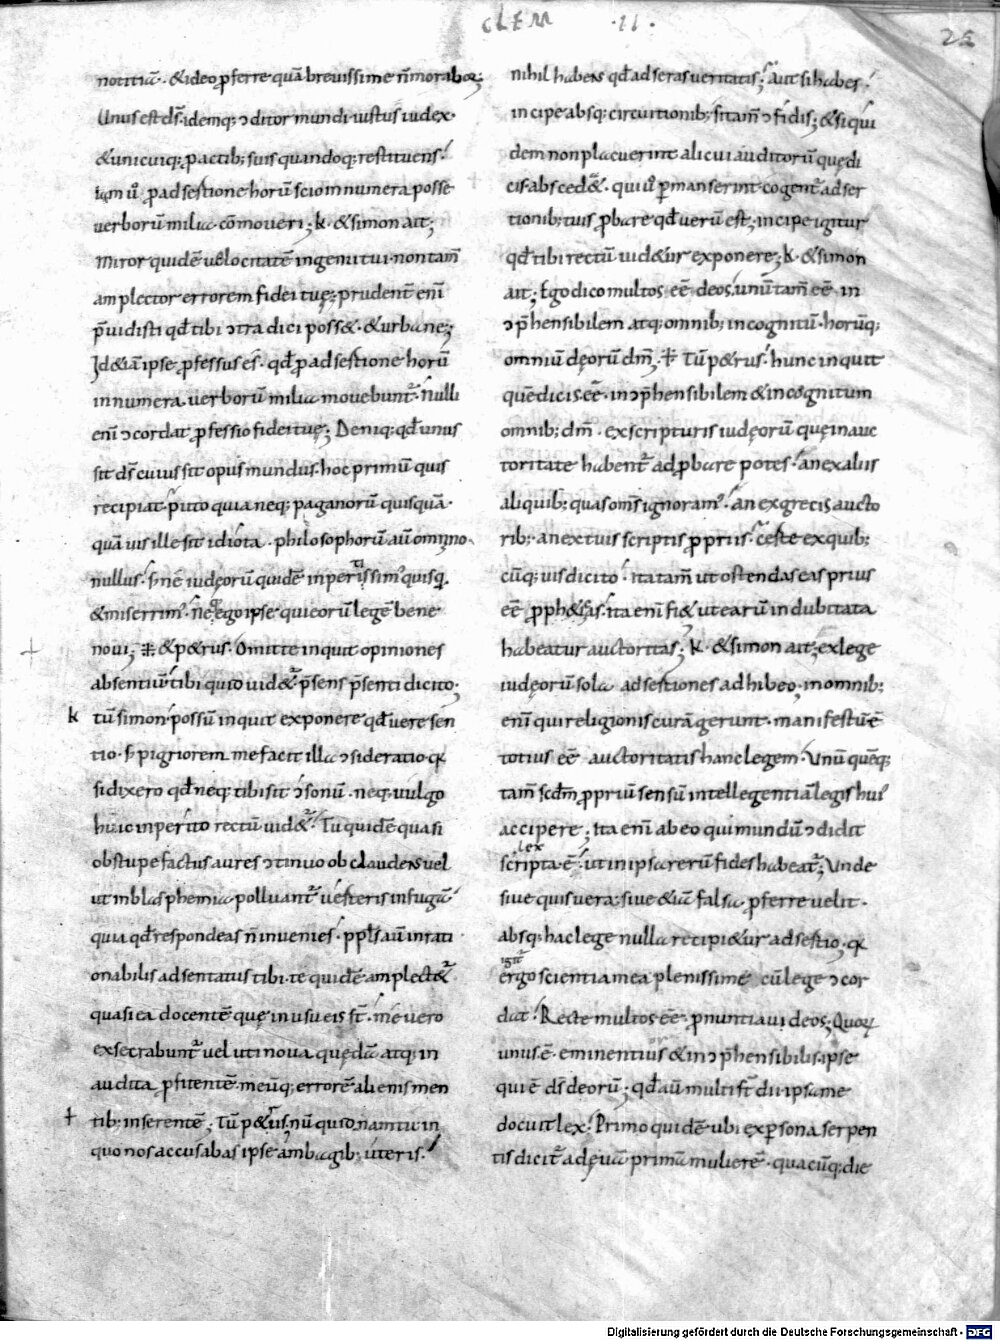 CLEM ·II·
25
notitiā. &ideo ꝓferre quā breuissime n̄ morabor;
Unus est ds̄. idemq; ↄditor mundi iustus iudex.
& unicuiq; ꝓ actib; suis quandoq; restituens.
iam u͛o ꝓ adsestione horū scio innumera posse
uerborū milia cōmoueri; k. & simon ait;
miror quidē uelocitatē ingenii tui. non tam̄
amplector errorem fidei tuę; prudent͛ eni
p̄uidisti qđ tibi ↄtradici poss&. & urbane;
Id &iā ipse ꝓfessus es. qđ ꝓ adsestione horū
innumera uerborū milia mouebunt͛. Nulli
eni ↄcordat ꝓfessio fidei tuę; Deniq; qđ unus
sit ds̄ cuius sit opus mundus. hoc primū quis
recipiat. puto quia neq; paganorū quisquā.
quā uis ille sit idiota. philosophorū aū omnino
nullus. s; nē iudęorū quidē inperitissim᾽ quisq.
& miserrim᾽. nē ego ipse qui eorū legē bene
noui; & p&rus. Omitte inquit opiniones
absentiū. tibi quid uid&͛ p̄sens p̄senti dicito;
k tū simon possū inquit exponere qđ uere sen
tio. s; pigriorem me facit illa ↄsideratio. q
si dixero qđ neq; tibi sit ↄsonū. neq; uulgo
huic inperito rectū uid&͛. Tu quidē quasi
obstupefactus aures ↄtinuo obclaudens uel
ut in blasphemia polluant͛. uesteris in fugā
quia qđ respondeas n̄ inuenies. ppl̄s aū inrati
onabilis adsentatus tibi. te quidē amplect&͛
quasi ea docentē quę in usu eis st̄. me uero
exsecrabunt͛ uel uti noua quędā atq; in
audita ꝓfitentē. meūq; errorē alienis men
† tib; inserentē; Tū p&rus. nū quid nam tu in
quo nos accusabas ipse ambagib; uteris.
nihil habens qđ adseras ueritatis; Aut si habes.
incipe absq; circuitionib; si tam̄ ↄfidis; & siqui
dem non placuerint alicui auditorū quę di
cis. absced&͛. qui u͛o ꝑmanserint cogent͛ adser
tionib; tuis ꝓbare qđ uerū est; incipe igitur
qđ tibi rectū uid&ur exponere; k. & simon
ait; Ego dico multos eē deos. unū tam̄ eē in
ↄp̄hensibilem atq; omnib; incognitū. horūq;
omniū dęorū dm̄. † Tū p&rus. hunc inquit
quē dicis eē. inↄp̄hensibilem & incognitum
omnib; dm̄. ex scripturis iudęorū quę in auc
toritate habent͛ adꝓbare potes. an ex aliis
aliquib; quas om̄s ignoram᾽. an ex grecis aucto
rib;. an ex tuis scriptis ꝓpriis. ceste ex quib;
cūq; uis dicito. ita tam̄ ut ostendas eas prius
eē ꝓph&icas. ita eni fi& ut earū indubitata
habeatur auctoritas; k. & simon ait; ex lege
iudęorū sola adsestiones adhibeo. in omnib;
eni qui religionis curā gerunt. manifestū ē
totius eē auctoritatis hanc legem. Unū quēq;
tam̄ scdm̄ ꝓpriū sensū intellegentiā legis hui᾽
accipere; ita eni ab eo qui mundū ↄdidit
lex
scripta ē. ut in ipsa rerū fides habeat͛; Unde
siue quis uera. siue &iā falsa ꝓferre uelit.
absq; hac lege nulla recipi&ur adsestio. q
igit͛
ergo scientia mea plenissime cū lege ↄcor
dat. Recte multos eē ꝓnuntiaui deos; Quoꝝ
unus ē. eminentius & inↄp̄hensibilis. ipse
qui ē ds̄ deorū; qđ aū multi st̄ dii ipsa me
docuit lex. Primo quidē. ubi ex ꝑsona serpen
tis dicit͛ ad ęuā primā mulierē. quacūq; die
Digitalisierung gefördert durch die Deutsche Forschungsgemeinschaft - DFG